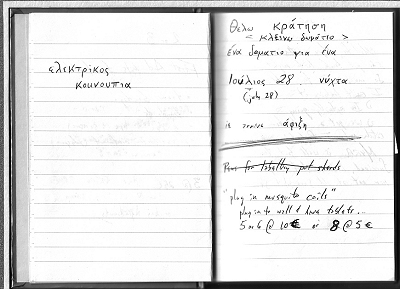 ελεκτρικος
κουνουπια
θελω κράτηση
< κλεινω δωμάτιο >
ένα δωματιο για ένα
Ιούλιος 28 νύχτα
(july 28)
άφιξη
Pens for labelling pot sherds
"plug in mosquito coils"
plug in to wall & have tablets...
5 or 6 @ 10€ or 8 @ 5€